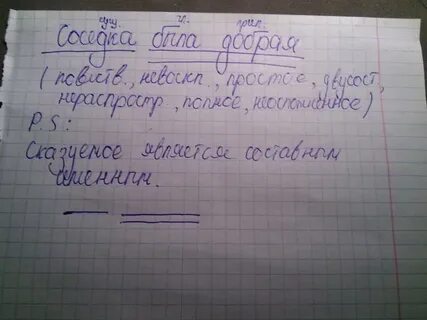 сущ. гл. прил.
Соседка была добрая
(повеств., невоскл., простое, двусост,
нераспростр, полное, неосложненное)
P.S:
Сказуемое является составным
именным.